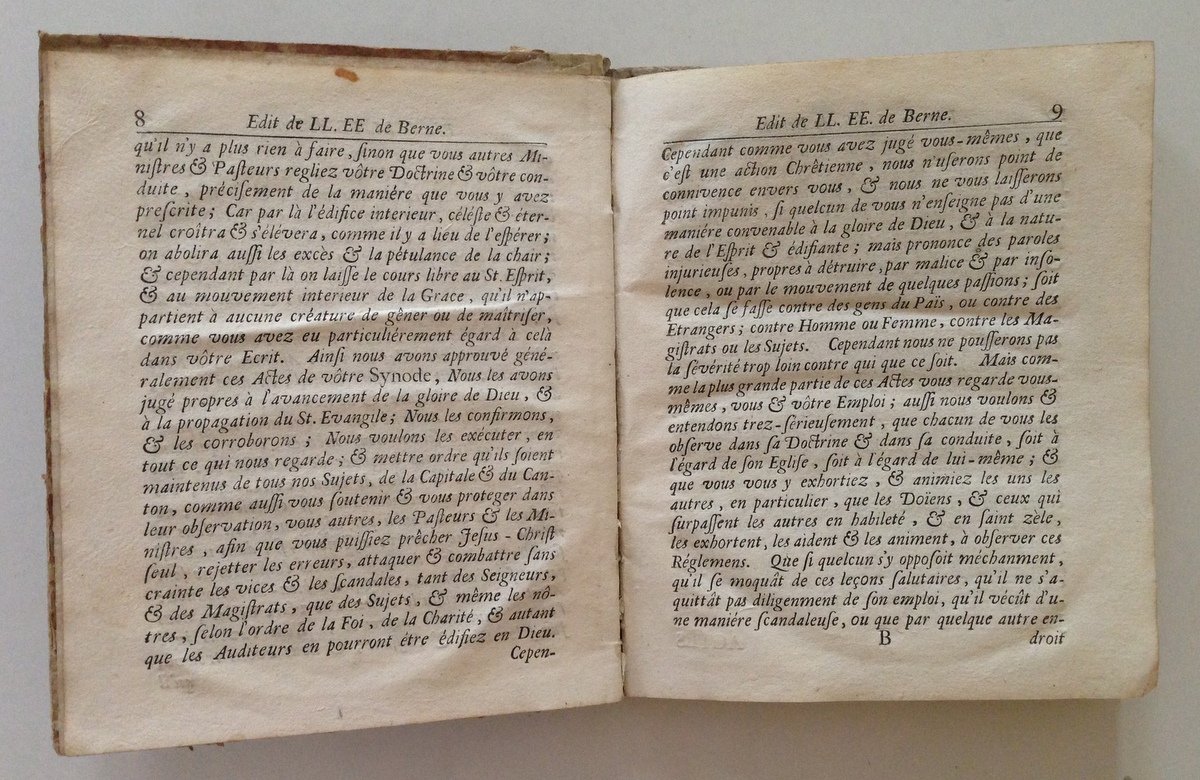 8
Edit de LL. EE de Berne.
qu'il n'y a plus rien à faire, ſinon que vous autres Mi-
niſtres & Paſteurs regliez vôtre Doctrine & vôtre con-
duite, préciſement de la maniére que vous y avez
preſcrite; Car par là l'édifice interieur, céléſte & éter-
nel croîtra & s'élévera, comme il y a lieu de l'eſpérer;
on abolira auſſi les excès & la pétulance de la chair;
& cependant par là on laiſſe le cours libre au St. Eſprit,
& au mouvement interieur de la Grace, qu'il n'ap-
partient à aucune créature de gêner ou de maîtriſer,
comme vous avez eu particuliérement égard à celà
dans vôtre Ecrit. Ainſi nous avons approuvé géné-
ralement ces Actes de vôtre Synode, Nous les avons
jugé propres à l'avancement de la gloire de Dieu, &
à la propagation du St. Evangile; Nous les confirmons,
& les corroborons; Nous voulons les exécuter, en
tout ce qui nous regarde; & mettre ordre qu'ils ſoient
maintenus de tous nos Sujets, de la Capitale & du Can-
ton, comme auſſi vous ſoutenir & vous proteger dans
leur obſervation, vous autres, les Paſteurs & les Mi-
niſtres, afin que vous puiſſiez prêcher Jesus-Chriſt
ſeul, rejetter les erreurs, attaquer & combattre ſans
crainte les vices & les ſcandales, tant des Seigneurs,
& des Magiſtrats, que des Sujets, & même les nô-
tres, ſelon l'ordre de la Foi, de la Charité, & autant
que les Auditeurs en pourront étre édifiez en Dieu.
Cepen-
Edit de LL. EE. de Berne.
9
Cependant comme vous avez jugé vous-mêmes, que
c'eſt une action Chrêtienne, nous n'uſerons point de
connivence envers vous, & nous ne vous laiſſerons
point impunis, ſi quelcun de vous n'enſeigne pas d'une
maniére convenable à la gloire de Dieu, & à la natu-
re de l'Eſprit & édifiante; mais prononce des paroles
injurieuſes, propres à détruire, par malice & par inſo-
lence, ou par le mouvement de quelques paſſions; ſoit
que cela ſe faſſe contre des gens du Païs, ou contre des
Etrangers; contre Homme ou Femme, contre les Ma-
giſtrats ou les Sujets. Cependant nous ne pouſſerons pas
la ſévérité trop loin contre qui que ce ſoit. Mais com-
me la plus grande partie de ces Actes vous regarde vous-
mêmes, vous & vôtre Emploi; auſſi nous voulons &
entendons trez-ſérieuſement, que chacun de vous les
obſerve dans ſa Doctrine & dans ſa conduite, ſoit à
l'égard de ſon Egliſe, ſoit à l'égard de lui-même; &
que vous vous y exhortiez, & animiez les uns les
autres, en particulier, que les Doïens, & ceux qui
ſurpaſſent les autres en habileté, & en ſaint zèle,
les exhortent, les aident & les animent, à obſerver ces
Réglemens. Que ſi quelcun s'y oppoſoit méchanment,
qu'il ſe moquât de ces leçons ſalutaires, qu'il ne s'a-
quittât pas diligenment de ſon emploi, qu'il vécût d'u-
ne maniére ſcandaleuſe, ou que par quelque autre en-
B
droit